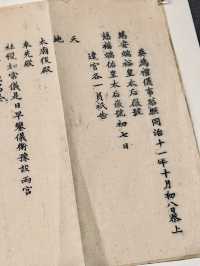 奏為禮儀事恭照同治十一年十月初八日恭上
慈安端裕皇太后徽號
慈禧端佑皇太后徽號初七日
遣官各一員祇告
天 地
太廟後殿
奉先殿
社稷如常儀是日早鑾儀衛豫設兩宮